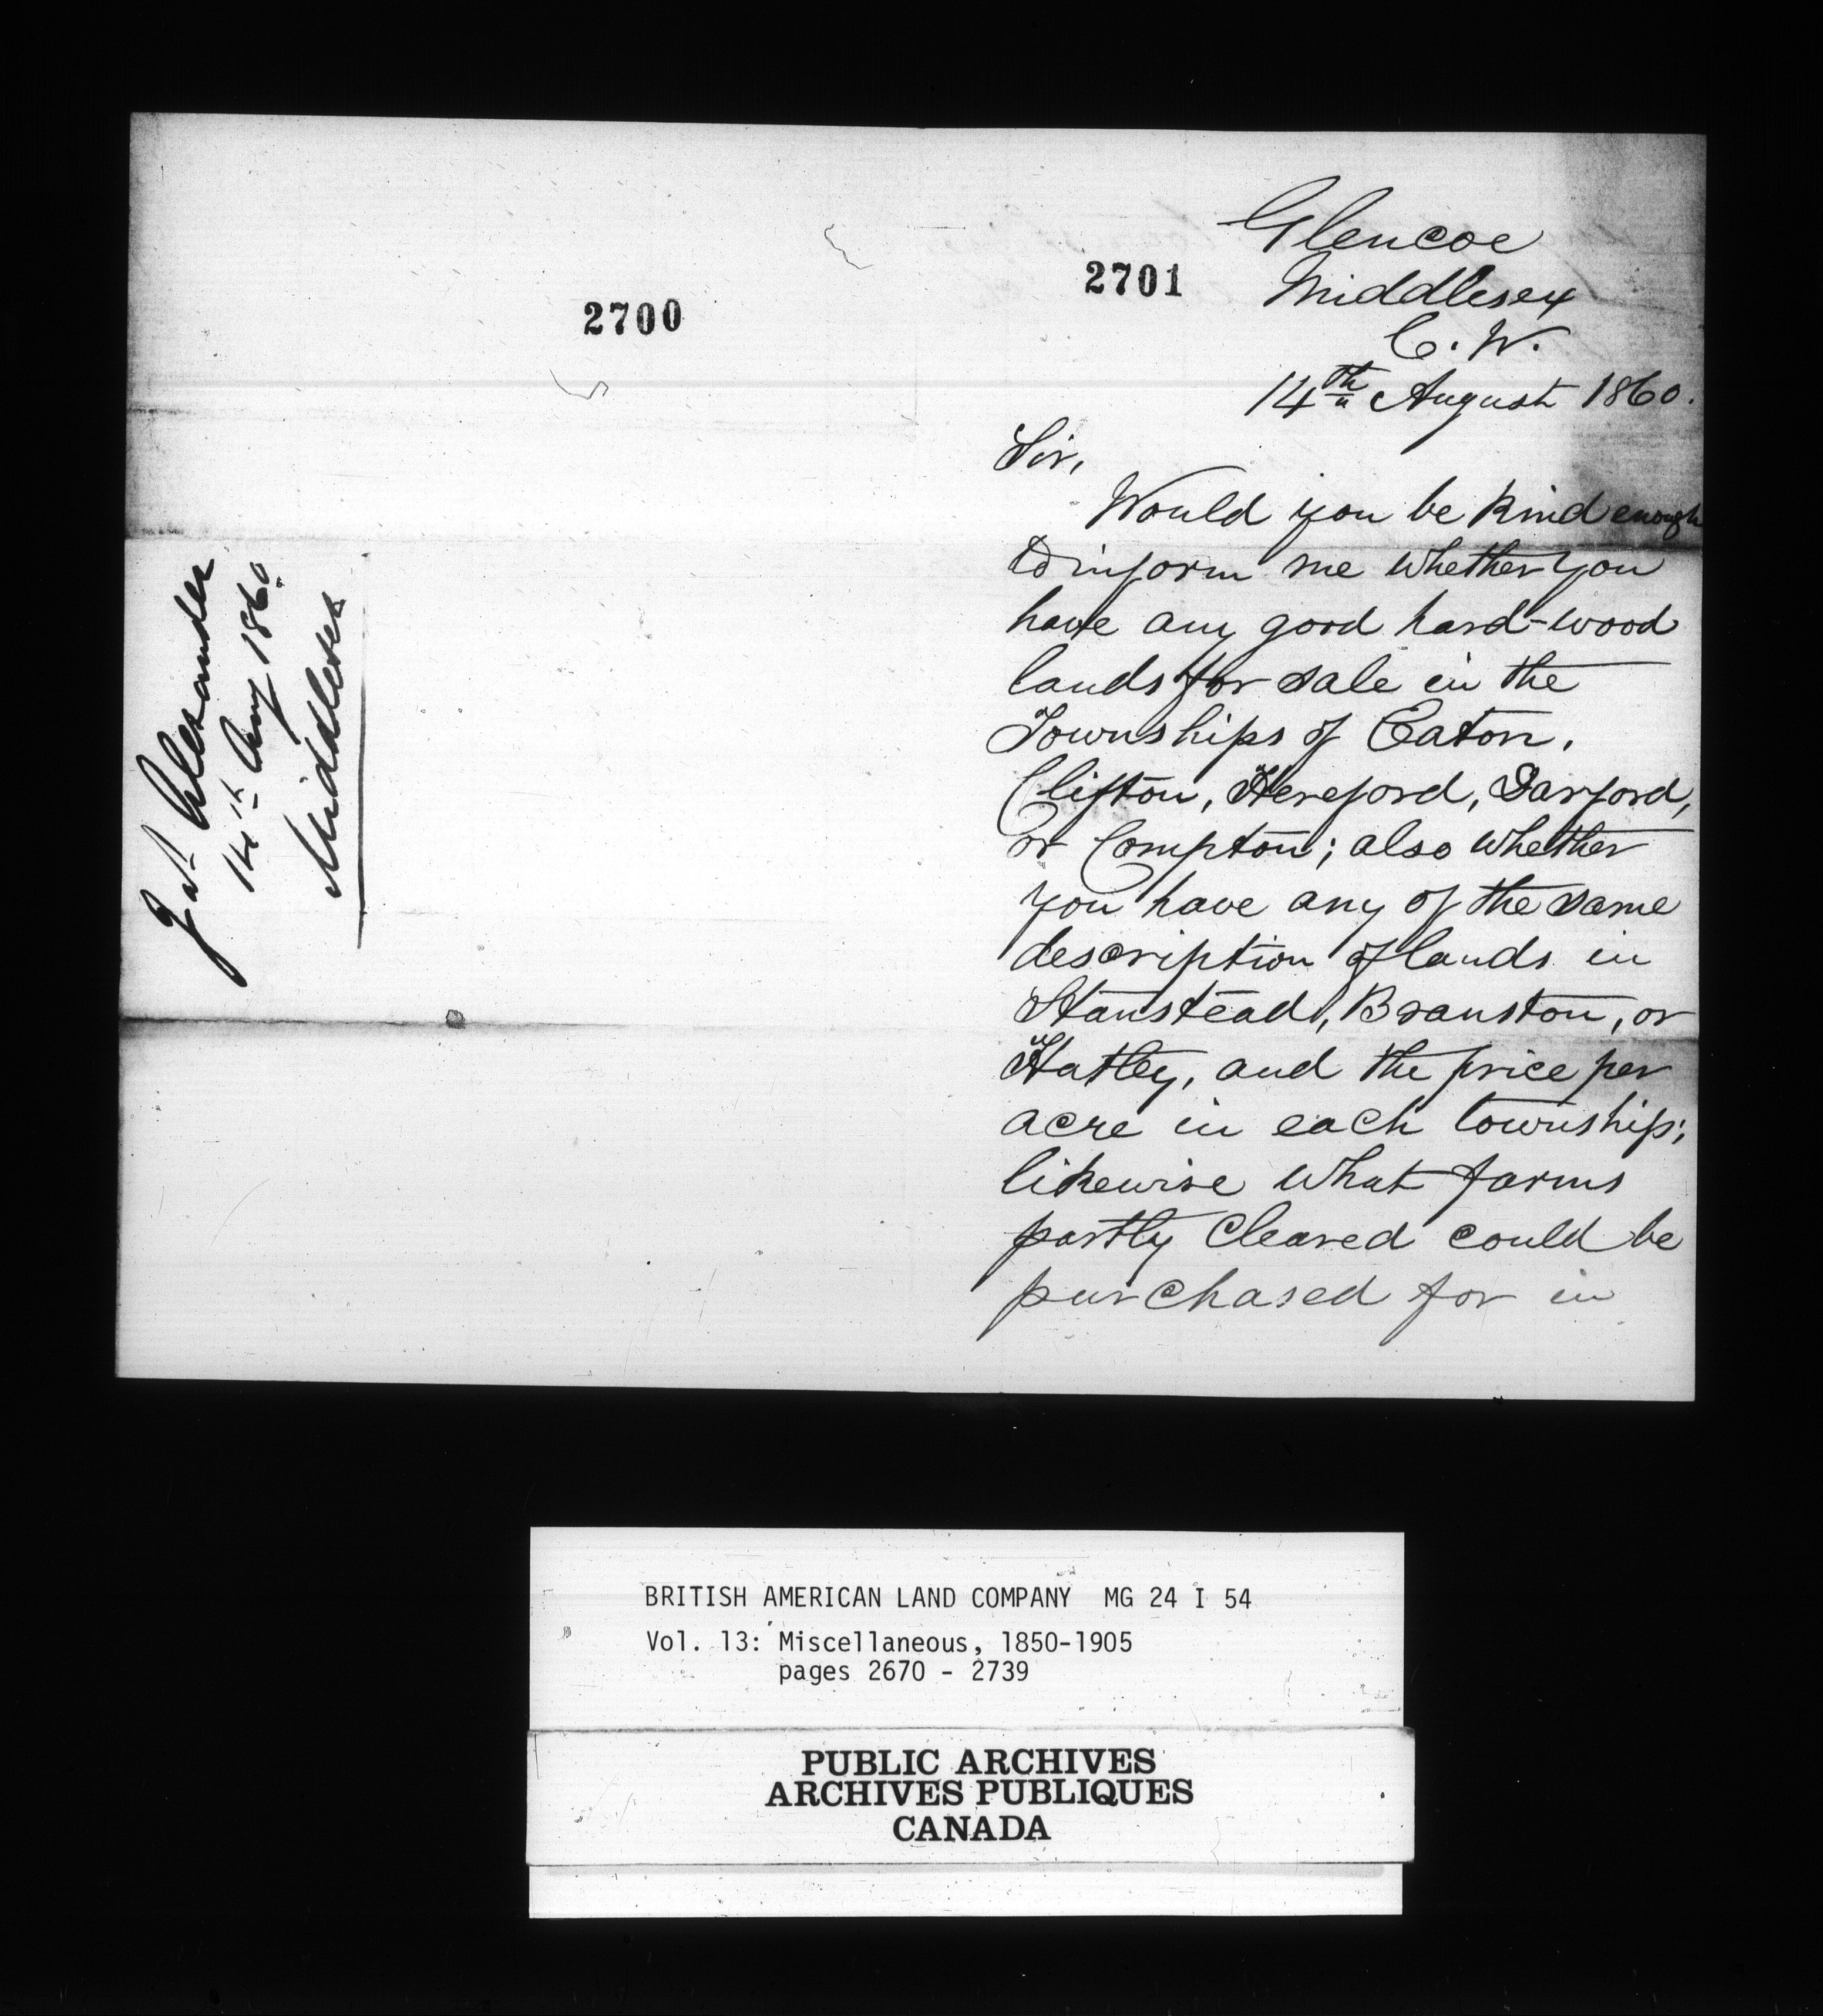 2700
Jas. Alexander
14th Aug 1860.
Middlesex
2701
Glencoe
Middlesex
C. W.
14th August 1860.
Sir,
Would you be kind enough
to inform me whether you
have any good hard-wood
lands for sale in the
Townships of Eaton,
Clifton, Hereford, Barford,
or Compton; also whether
you have any of the same
description of lands in
Stanstead, Branston, or
Hatley, and the price per
acre in each township;
likewise what farms
partly cleared could be
purchased for in
BRITISH AMERICAN LAND COMPANY MG 24 I 54
Vol. 13: Miscellaneous, 1850-1905
pages 2670 - 2739
PUBLIC ARCHIVES
ARCHIVES PUBLIQUES
CANADA